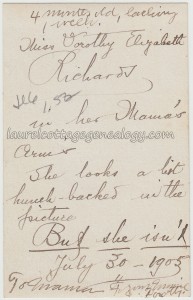 4 months old, lacking
1 week.
Miss Dorothy Elizabeth
Richards
1.50
in her Mama's
arms
laurelcottagegenealogy.com
She looks a bit
hunch-backed in the
picture
But she isn't
July 30 - 1905
To Mama